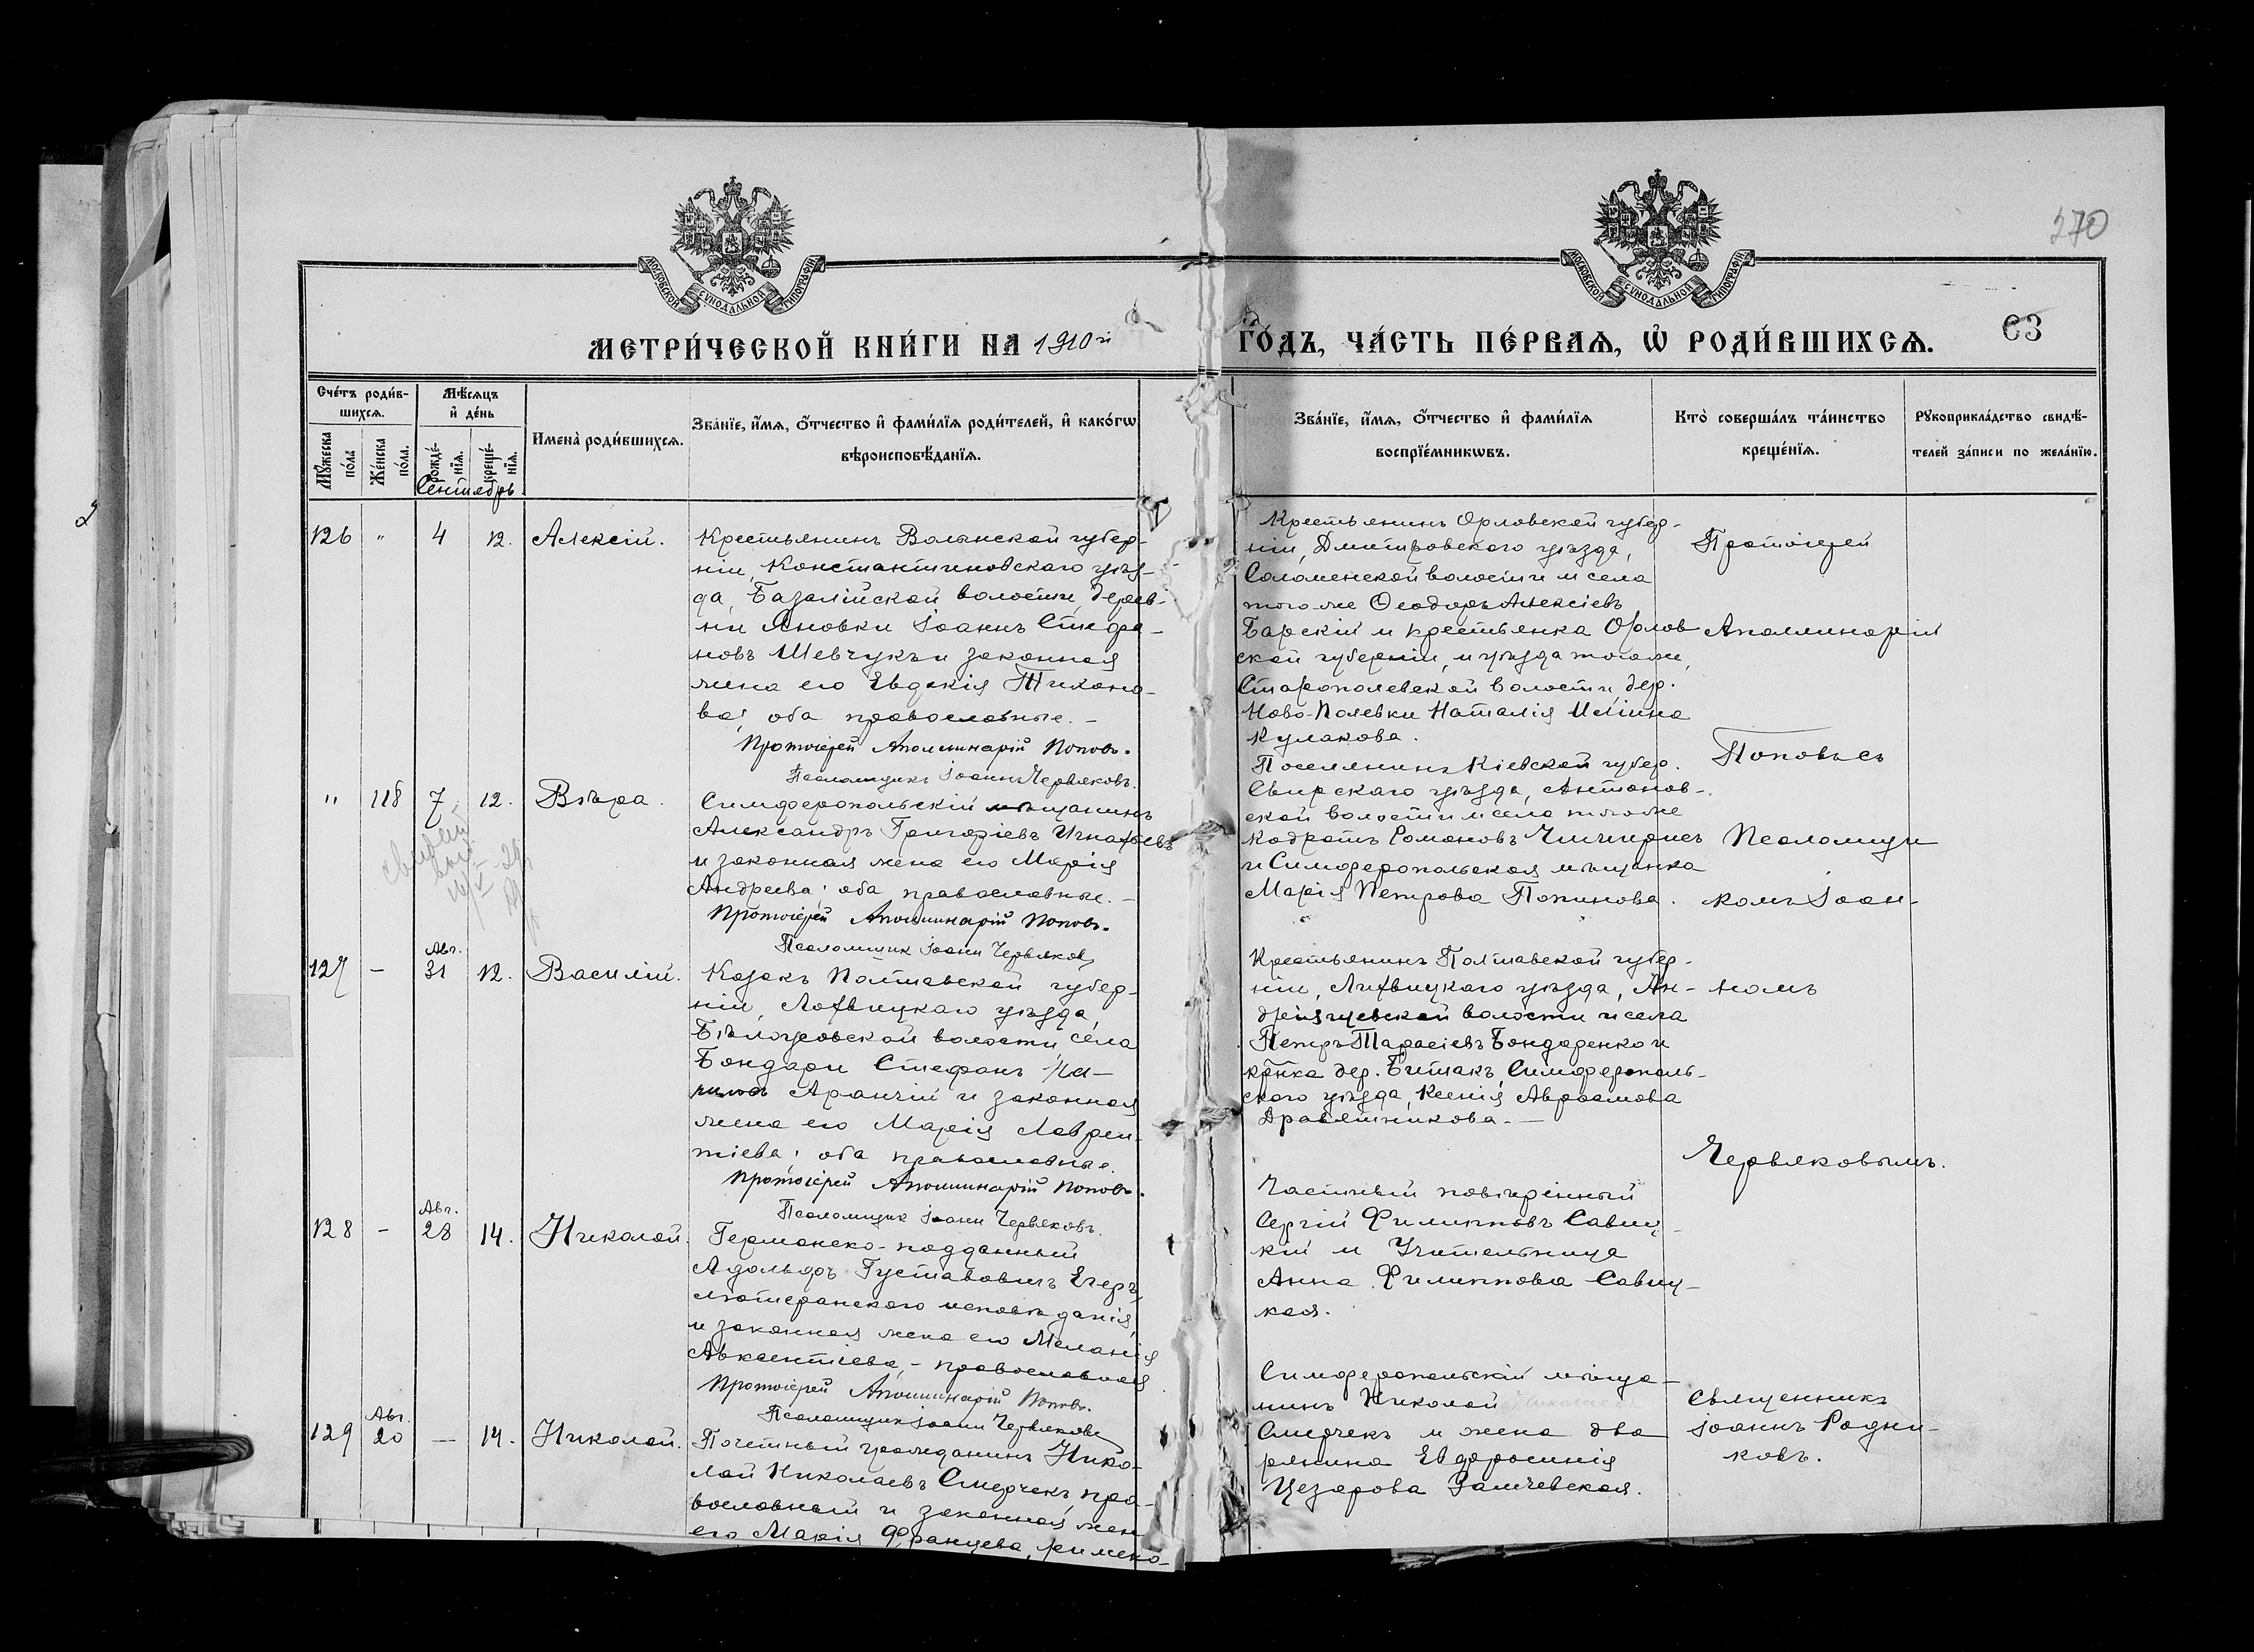 270
МОСКОВСКОЙ СѴНОДАЛЬНОЙ ТИПОГРАФІИ
МОСКОВСКОЙ СѴНОДАЛЬНОЙ ТИПОГРАФІИ
МЕТРИ́ЧЕСКОЙ КНИ́ГИ НА 1910й
ГО́ДЪ, ЧА́СТЬ ПЕ́РВАѦ, Ѡ҆ РОДИ́ВШИХСѦ.
63
Сче́тъ роди́в-
шихсѧ.
Мѣ́сѧцъ
и҆ де́нь
Мꙋ́жеска
по́ла
Же́нска
по́ла.
рожде́-
нїѧ.
креще́-
нїѧ.
Имена̀ роди́вшихсѧ.
Зва́нїе, и҆́мѧ, ѻ҆́тчество и҆ фами́лїѧ роди́телей, и҆ како́гѡ
вѣроисповѣ́данїѧ.
Зва́нїе, и҆́мѧ, ѻ҆́тчество и҆ фами́лїѧ
воспрїе́мникѡвъ.
Кто̀ соверша́лъ та́инство
креще́нїѧ.
Рꙋкоприкла́дство свидѣ́-
телей за́писи по жела́нїю.
Сентябрь
126 " 4 12. Алексій.
Крестьянинъ Волынской губер-
ніи, Константиновскаго уѣз-
да, Базалійской волости, дерев-
ни Яновки Іоаннъ Стефа-
новъ Шевчукъ и законная
жена его Евдокія Тихоно-
ва, оба православные. -
Протоіерей Аполлинарій Поповъ.
Псаломщикъ Іоаннъ Червяковъ.
Крестьянинъ Орловской губер-
ніи, Дмитровскаго уѣзда,
Соломенской волости и села
того же Ѳеодоръ Алексіевъ
Барскій и крестьянка Орлов
ской губерніи, и уѣзда тогоже,
волости, дер.
Ново-Полевки Наталія Ильина
Кулакова.
Протоіерей
Аполлинарій
Поповъ съ
" 118 7 12. Вѣра.
Симферопольскій мѣщанинъ
Александръ Григоріевъ Игнатьевъ
и законная жена его Марія
Андреева; оба православные. -
Протоіерей Аполлинарій Поповъ.
Псаломщик Іоанн Червяков
Поселянинъ Кіевской губер.
Свирскаго уѣзда, Антонов-
ской волости и села того же
Кодратъ Романовъ
и Симферопольская мѣщанка
Марія Петрова
Псаломщи
комъ Іоан-
127 - Авг. 31 12. Василій.
Козакъ Полтавской губер-
ніи, Лохвицкаго уѣзда,
Бѣлоусовской волости, села
Бондари Стефанъ
и законная
жена его Марія Лаврен-
тіева; оба православные.
Протоіерей Аполлинарій Поповъ.
Псаломщик Іоанн Червяковъ.
Крестьянинъ Полтавской губер-
ніи, уѣзда, Ан-
волости и села
Петръ Тарасіевъ Бондаренко и
кр-нка дер. Битакъ, Симферополь-
скаго уѣзда, Ксенія Авраамова
номъ
Червяковымъ.
128 - Авг. 28 14. Николай.
Германско-подданный
Адольфъ Густавовичъ Егеръ,
лютеранскаго исповѣданія,
и законная жена его Меланія
Авксентіева, - православная
Протоіерей Аполлинарій Поповъ.
Псаломщик Іоанн Червяковъ
Частный повѣренный
Сергій Филипповъ Савиц-
кій и Учительница
Анна Филиппова Савиц-
кая.
129 Авг. 20 — 14. Николай.
Почетный гражданинъ Нико-
лай Николаевъ Смерчекъ, пра-
вославный и законная жен
его Марія Францева, римско-
Симферопольскій мѣща-
нинъ Николай
Смерчекъ и жена дво
рянина Евфросинія
Цезарова
Священникъ
Іоаннъ Родни-
ковъ.